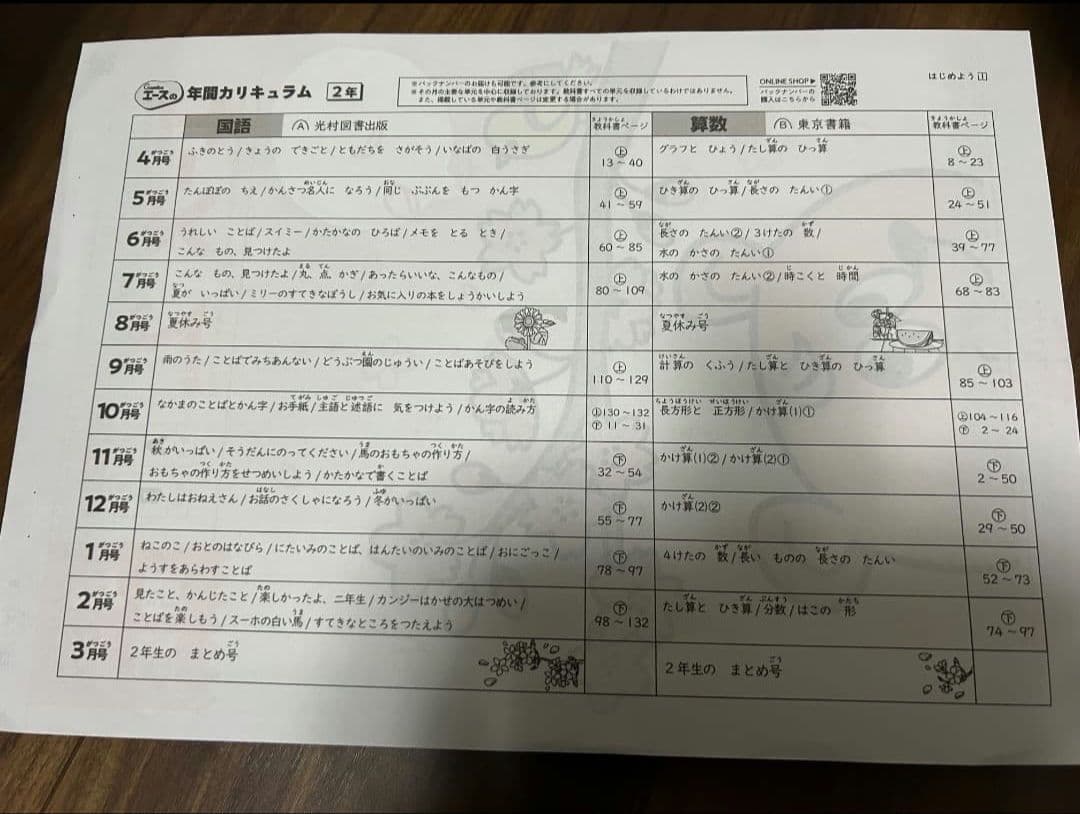 はじめよう 1
エースの 年間カリキュラム 2年
※バックナンバーのお届けも可能です。参考にしてください。
※その月の主要な単元を中心に収録しております。教科書すべての単元を収録しているわけではありません。
また、掲載している単元や教科書ページは変更する場合があります。
ONLINE SHOP▶
バックナンバーの
購入はこちらから
国語 Ⓐ 光村図書出版 教科書ページ 算数 Ⓑ 東京書籍 教科書ページ
4月号 ふきのとう/きょうの できごと/ともだちを さがそう/いなばの 白うさぎ 上 13~40 グラフと ひょう/たし算の ひっ算 上 8~23
5月号 たんぽぽの ちえ/かんさつ名人に なろう/同じ ぶぶんを もつ かん字 上 41~59 ひき算の ひっ算/長さの たんい① 上 24~51
6月号 うれしい ことば/スイミー/かたかなの ひろば/メモを とる とき/
こんな もの、見つけたよ 上 60~85 長さの たんい②/3けたの 数/
水の かさの たんい① 上 39~77
7月号 こんな もの、見つけたよ/丸、点、かぎ/あったらいいな、こんなもの/
夏が いっぱい/ミリーのすてきなぼうし/お気に入りの本をしょうかいしよう 上 80~109 水の かさの たんい②/時こくと 時間 上 68~83
8月号 夏休み号 夏休み号
9月号 雨のうた/ことばでみちあんない/どうぶつ園のじゅうい/ことばあそびをしよう 上 110~129 計算の くふう/たし算と ひき算の ひっ算 上 85~103
10月号 なかまのことばとかん字/お手紙/主語と述語に 気をつけよう/かん字の読み方 上130~132 長方形と 正方形/かけ算(1)① 上104~116
下 11~31 下 2~24
11月号 秋がいっぱい/そうだんにのってください/馬のおもちゃの作り方/
おもちゃの作り方をせつめいしよう/かたかなで書くことば 下 32~54 かけ算(1)②/かけ算(2)① 下 2~50
12月号 わたしはおねえさん/お話のさくしゃになろう/冬がいっぱい 下 55~77 かけ算(2)② 下 29~50
1月号 ねこのこ/おとのはなびら/にたいみのことば、はんたいのいみのことば/おにごっこ/
ようすをあらわすことば 下 78~97 4けたの 数/長い ものの 長さの たんい 下 52~73
2月号 見たこと、かんじたこと/楽しかったよ、二年生/カンジーはかせの大はつめい/
ことばを楽しもう/スーホの白い馬/すてきなところをつたえよう 下 98~132 たし算と ひき算/分数/はこの 形 下 74~97
3月号 2年生の まとめ号 2年生の まとめ号